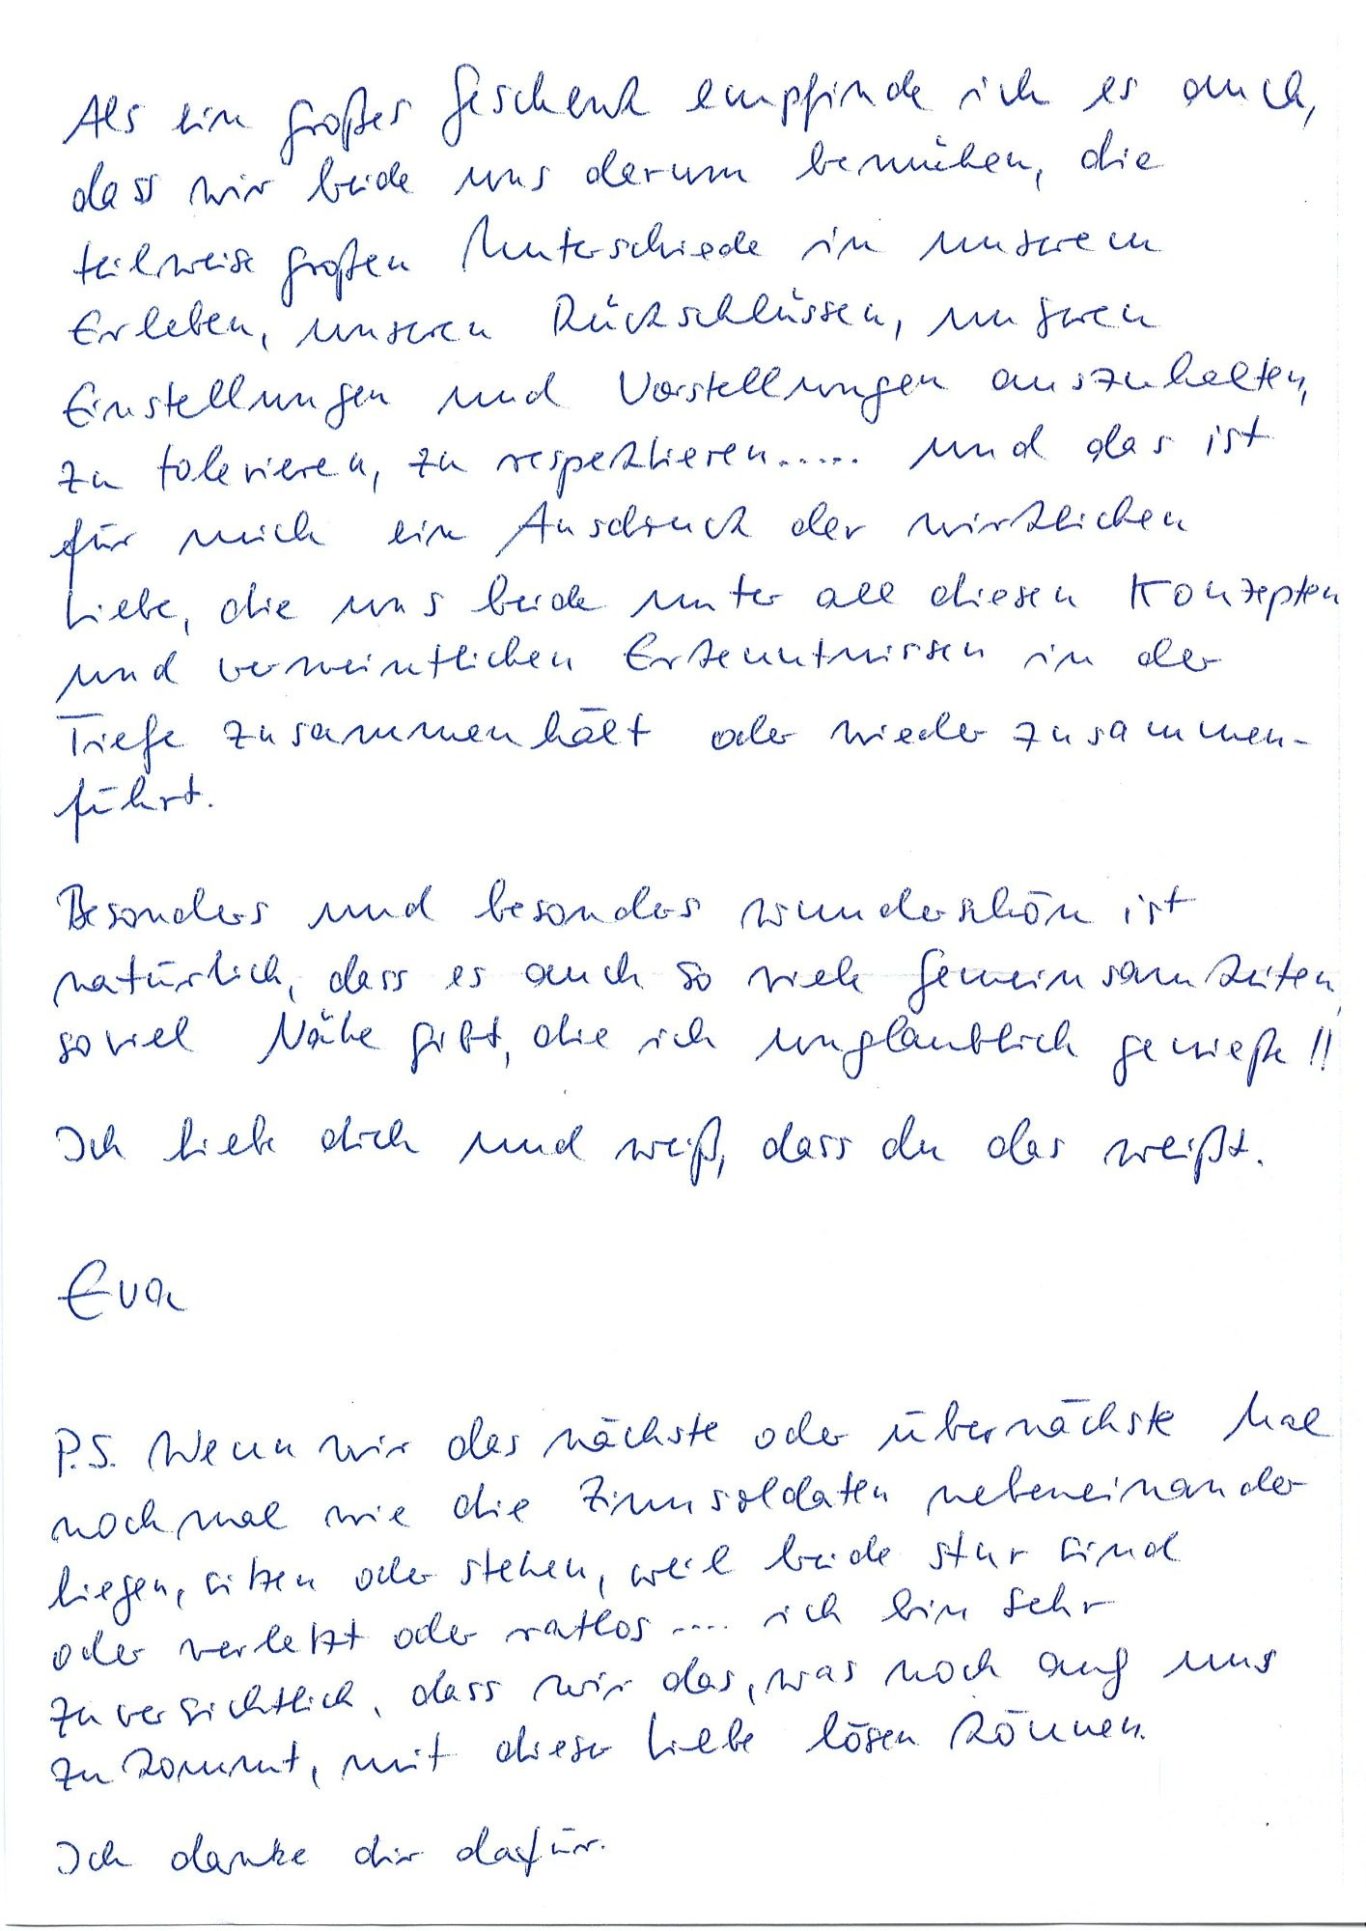 Als ein großes Geschenk empfinde ich es auch,
dass wir beide uns darum bemühen, die
teilweise großen Unterschiede in unserem
Erleben, unseren Rückschlüssen, unseren
Einstellungen und Vorstellungen auszuhalten,
zu tolerieren, zu respektieren..... und das ist
für mich ein Ausdruck der wirklichen
Liebe, die uns beide unter all diesen Konzepten
und vermeintlichen Erkenntnissen in der
Tiefe zusammenhält oder wieder zusammen-
führt.
Besonders und besonders wunderschön ist
natürlich, dass es auch so viele Gemeinsamkeiten,
soviel Nähe gibt, die ich unglaublich genieße!!
Ich liebe dich und weiß, dass du das weißt.
Eva
P.S. Wenn wir das nächste oder übernächste Mal
nochmal wie die Zinnsoldaten nebeneinander
liegen, sitzen oder stehen, weil beide stur sind
oder verletzt oder ratlos.... ich bin sehr
zuversichtlich, dass wir das, was noch auf uns
zukommt, mit dieser Liebe lösen können.
Ich danke dir dafür.